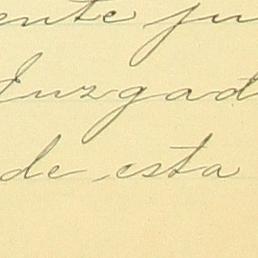 ente ju
Juzgad
de esta